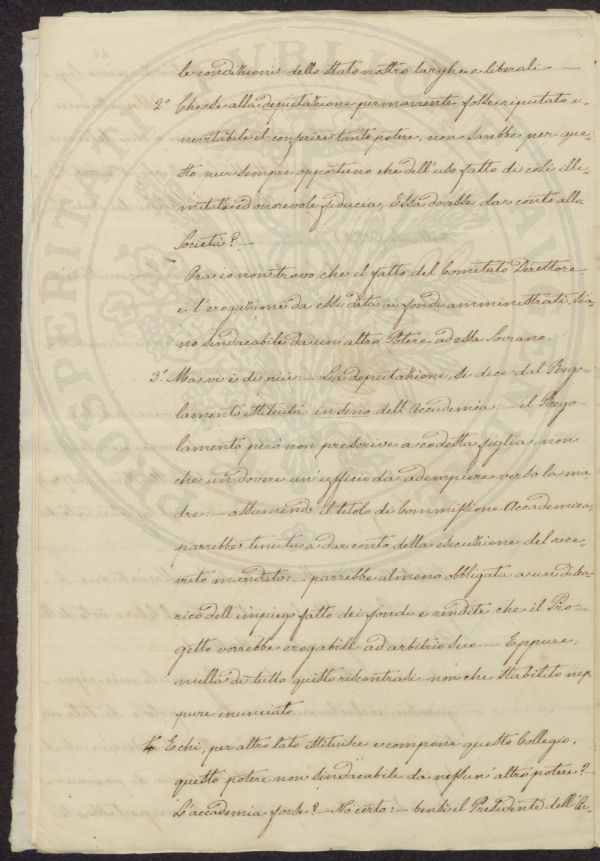 le condizioni dello stato nostro larghe e liberali —
2.º Che se alla deputazione permanente fosse riputato i-
nevitabile il conferire tanto potere, non sarebbe per que-
sto pur sempre opportuno che dell'uso fatto di così illi-
mitata ed onorevole fiducia, Essa dovesse dar conto alla
Società? —
Ora io non trovo che il fatto del Comitato Direttore
e l'erogazione da essi data ai fondi amministrati, sia-
no sindacabile da un altro Potere ad essa Sovrano.
3.º Ma vi è di più: — La deputazione, si dice dal Rego-
lamento istituita in seno dell'Accademia: — il Rego-
lamento però non prescrive a codesta figlia, non
che un dovere un'ufficio da adempiere verso la ma-
dre: — assumendo il titolo di Commissione Accademica,
parrebbe tenuta a dar conto della esecuzione del rice-
vuto mandato: — parrebbe almeno obbligata a un discar-
rico dell'impiego fatto dei fondi e rendite che il Pro-
getto vorrebbe erogabili ad arbitrio Suo. — Eppure,
nulla di tutto questo riscontrasi non che stabilito nep-
pure enunciato.
4. E chi, per altro lato istituisce e compone questo Collegio,
questo potere non sindacabile da nessun'altro potere? —
L'accademia forse? — No certo: — bensì il Presidente dell'Ac-
PROSPERITATI PUBLICAE AUGENDAE